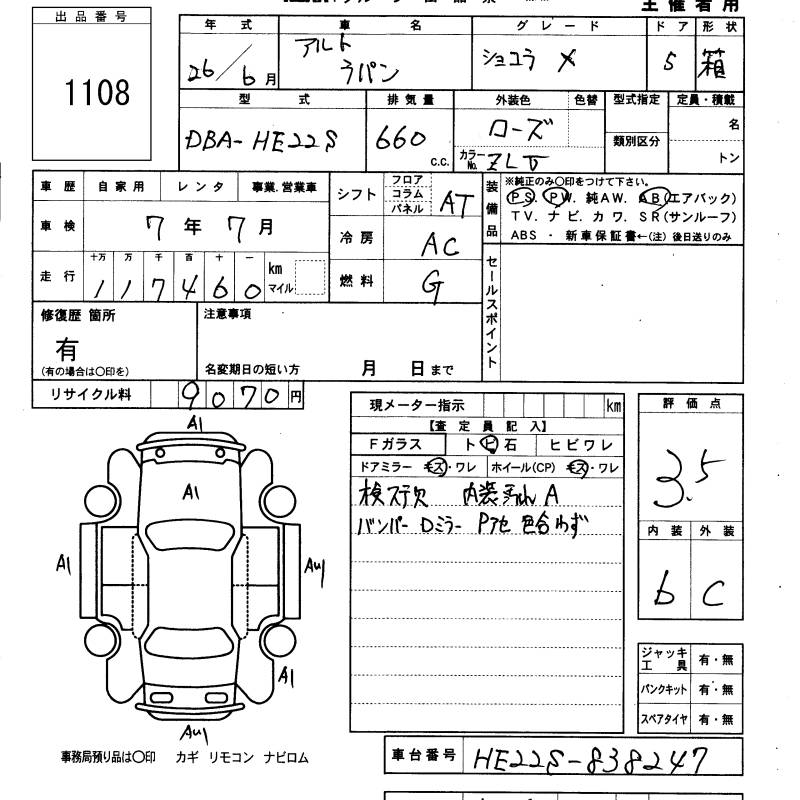 主催者用
出品番号
1108
年式 車名 グレード ドア 形状
26/6月 アルト ラパン ショコラ X 5 箱
型式 排気量 外装色 色替 型式指定 定員・積載
DBA-HE22S 660 c.c. ローズ 類別区分 名
カラーNo. ZLV トン
車歴 自家用 レンタ 事業.営業車
シフト フロア コラム パネル AT
装備品 ※純正のみ〇印をつけて下さい。
PS. PW. 純AW. AB(エアバック)
TV. ナビ. カワ. SR(サンルーフ)
ABS ・ 新車保証書←(注) 後日送りのみ
車検 7年7月
冷房 AC
走行 十万 万 千 百 十 一 km マイル
117460
燃料 G
セールスポイント
修復歴 箇所
有
(有の場合は〇印を)
注意事項
名変期日の短い方 月 日まで
リサイクル料 9070円
現メーター指示 km
【査定員記入】
Fガラス ト ビ 石 ヒビワレ
ドアミラー キズ・ワレ ホイール(CP) キズ・ワレ
検ステ欠 内装 A
バンパー Dミラー Pアセ 色合わず
評価点
3.5
内装 外装
b C
A1
A1
A1 AU1
A1
AU1
ジャッキ工具 有・無
パンクキット 有・無
スペアタイヤ 有・無
事務局預り品は〇印 カギ リモコン ナビロム
車台番号 HE22S-838247